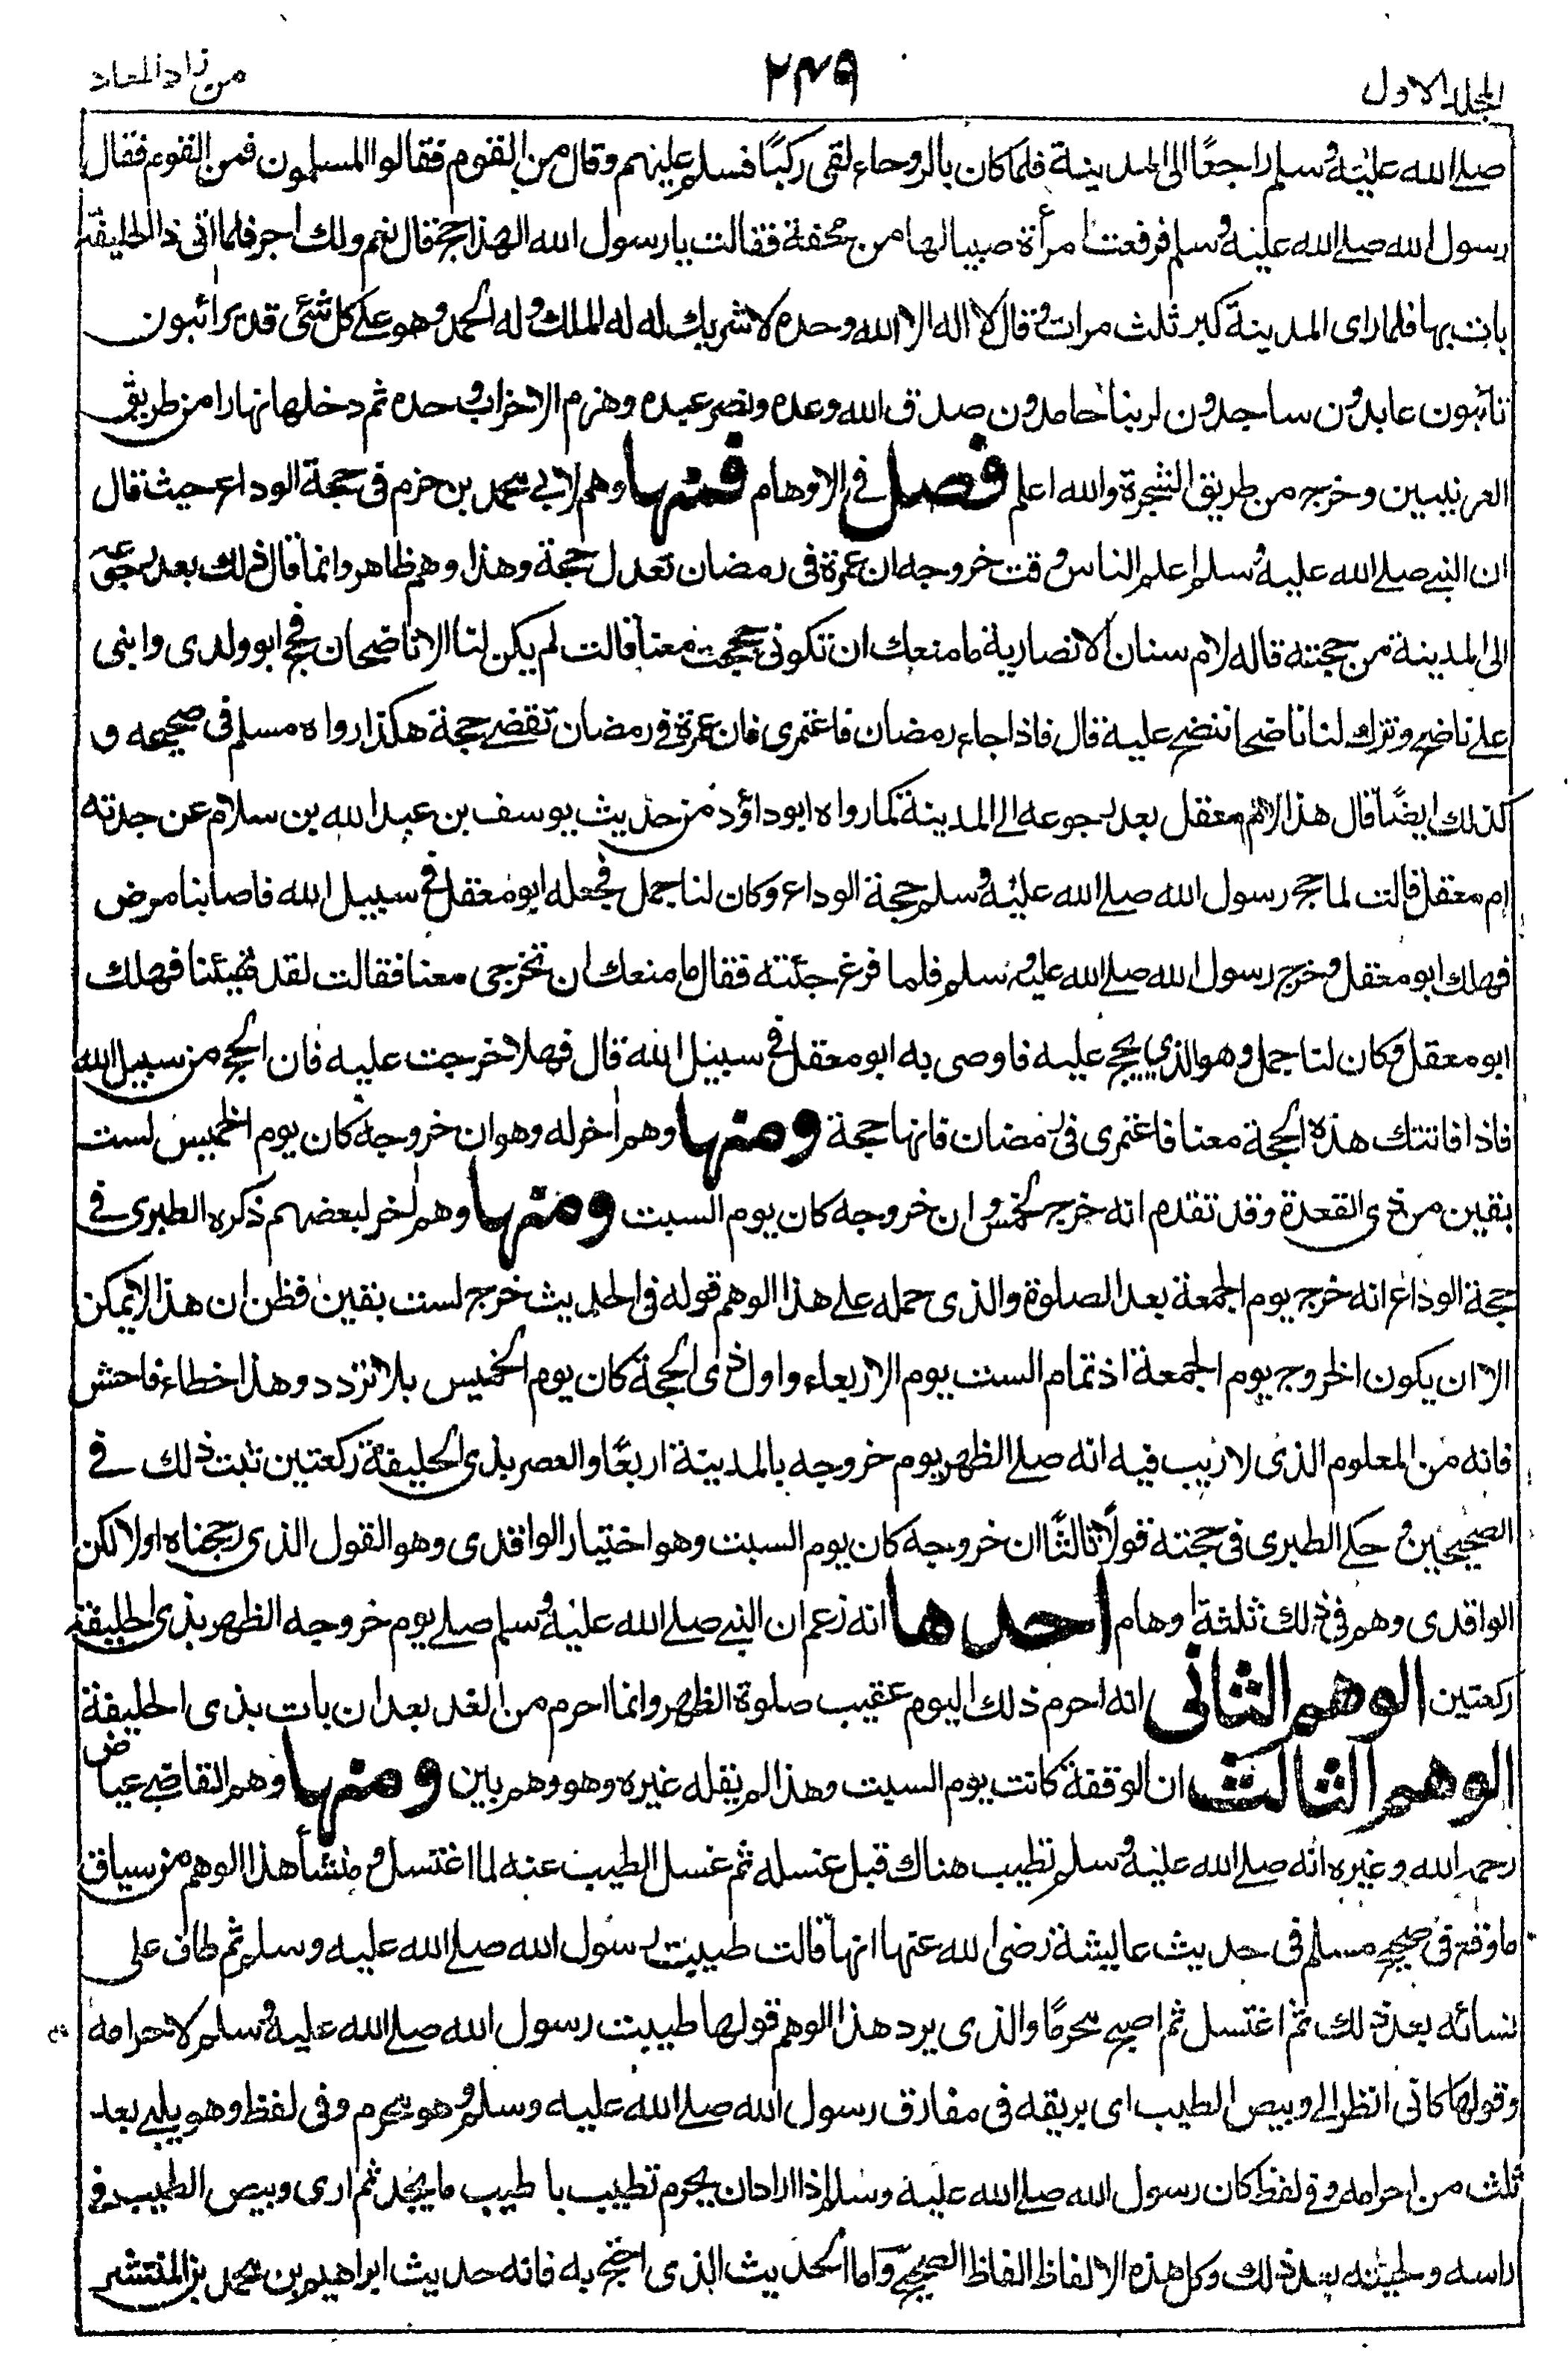 المجلد الاول
٢٤٩
من زاد المعاد
صلے الله عليه وسلم راجعًا الى المدينة فلما كان بالروحاء لقى ركبًا فسلم عليهم وقال من القوم فقالوا المسلمون فمن القوم فقال
رسول الله صلے الله عليه وسلم فرفعت امرأة صبيا لها من محفة فقالت يا رسول الله الهذا حج قال نعم ولك اجر فلما اتى ذا الحليفة
بات بها فلما راى المدينة كبر ثلث مرات وقال لا اله الا الله وحده لا شريك له له الملك وله الحمد وهو علے كل شئ قدير ائبون
تائبون عابدون ساجدون لربنا حامدون صدق الله وعده ونصر عبده وهزم الاحزاب وحده ثم دخلها نهارا من طريق
العرنيين وخرج من طريق الشجرة والله اعلم فصل فى الاوهام فمنها وهم لابى محمد بن حزم فى حجة الوداع حيث قال
ان النبے صلے الله عليه وسلم اعلم الناس وقت خروجه ان عمرة فى رمضان تعدل حجة وهذا وهم ظاهر وانما قال ذلك بعد رجوعه
الى المدينة من حجته قاله لام سنان الانصارية ما منعك ان تكونى حججت معنا قالت لم يكن لنا الا ناضحان فحج ابو ولدى وابنى
علے ناضح وترك لنا ناضحا ننضح عليه قال فاذا جاء رمضان فاعتمرى فان عمرة فے رمضان تقضے حجة هكذا رواه مسلم فى صحيحه و
كذلك ايضًا قال هذا لام معقل بعد رجوعه الے المدينة كما رواه ابو داؤد من حديث يوسف بن عبد الله بن سلام عن جدته
ام معقل قالت لما حج رسول الله صلے الله عليه وسلم حجة الوداع وكان لنا جمل فجعله ابو معقل فے سبيل الله فاصابنا مرض
فهلك ابو معقل وخرج رسول الله صلے الله عليه وسلم فلما فرغ جئته فقال ما منعك ان تخرجى معنا فقالت لقد تهيئنا فهلك
ابو معقل وكان لنا جمل وهو الذي يحج عليه فاوصى به ابو معقل فے سبيل الله قال فهلا خرجت عليه فان الحج من سبيل الله
فاذا فاتتك هذه الحجة معنا فاعتمرى فى رمضان فانها حجة ومنها وهم اخر له وهو ان خروجه كان يوم الخميس لست
بقين من ذى القعدة وقد تقدم انه خرج لخمس وان خروجه كان يوم السبت ومنها وهم اخر لبعضهم ذكره الطبرى فے
حجة الوداع انه خرج يوم الجمعة بعد الصلوة والذى حمله علے هذا الوهم قوله فى الحديث خرج لست بقين فظن ان هذا لا يمكن
الا ان يكون الخروج يوم الجمعة اذ تمام الست يوم الاربعاء واول ذى الحجة كان يوم الخميس بلا تردد وهذا خطاء فاحش
فانه من المعلوم الذى لا ريب فيه انه صلے الظهر يوم خروجه بالمدينة اربعًا والعصر بذى الحليفة ركعتين ثبت ذلك فے
الصحيحين وحكے الطبرى فى حجته قولًا ثالثًا ان خروجه كان يوم السبت وهو اختيار الواقدى وهو القول الذى رجحناه اولا لكن
الواقدى وهم فى ذلك ثلثة اوهام احدها انه زعم ان النبے صلے الله عليه وسلم صلے يوم خروجه الظهر بذى الحليفة
ركعتين الوهم الثانى انه احرم ذلك اليوم عقيب صلوة الظهر وانما احرم من الغد بعد ان بات بذى الحليفة
الوهم الثالث ان الوقفة كانت يوم السبت وهذا لم يقله غيره وهو وهم بين ومنها وهم القاضے عياض
رحمه الله وغيره انه صلے الله عليه وسلم تطيب هناك قبل غسله ثم غسل الطيب عنه لما اغتسل ومنشأ هذا الوهم من سياق
ما وقع فى صحيح مسلم فى حديث عايشة رضى الله عنها انها قالت طيبت رسول الله صلے الله عليه وسلم ثم طاف على
نسائه بعد ذلك ثم اغتسل ثم اصبح محرمًا والذى يرد هذا الوهم قولها طيبت رسول الله صلے الله عليه وسلم لاحرامه
وقولها كانى انظر الے وبيص الطيب اى بريقه فى مفارق رسول الله صلے الله عليه وسلم وهو محرم وفى لفظ وهو يلبے بعد
ثلث من احرامه وفے لفظ كان رسول الله صلے الله عليه وسلم اذا اراد ان يحرم تطيب باطيب ما يجد ثم ارى وبيص الطيب فے
راسه ولحيته بعد ذلك وكل هذه الالفاظ الفاظ الصحيح واما الحديث الذى احتج به فانه حديث ابراهيم بن محمد بن المنتشر